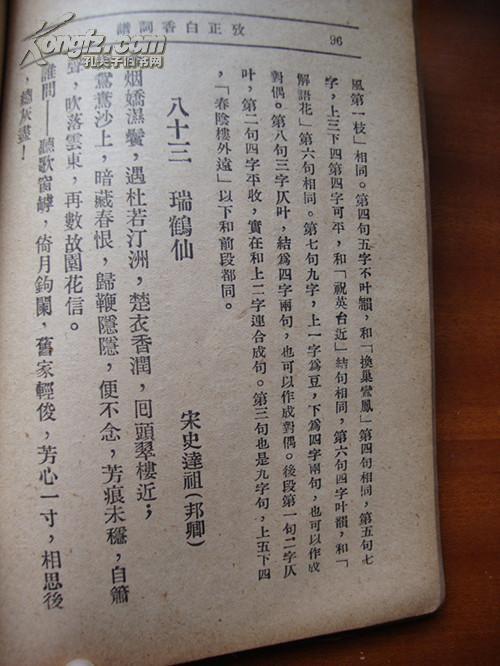 攷正白香詞譜
96
風第一枝」相同。第四句五字不叶韻，和「換巢鸞鳳」第四句相同，第五句七
字，上三下四第四字可平，和「祝英台近」結句相同，第六句四字叶韻，和「
解語花」第六句相同。第七句九字，上一字爲豆，下爲四字兩句，也可以作成
對偶。第八句三字仄叶，結爲四字兩句，也可以作成對偶。後段第一句二字仄
叶，第二句四字平收，實在和上二字連合成句。第三句也是九字句，上五下四
，「春陰樓外遠」以下和前段都同。
八十三　瑞鶴仙
宋史達祖(邦卿)
烟嬌濕鬢，遇杜若汀洲，楚衣香潤，囘頭翠樓近；
鴛鴦沙上，暗藏春恨，歸鞭隱隱，便不念，芳痕未穩，自簫
聲，吹落雲東，再數故園花信。
誰問——聽歌窗罅，倚月鈎闌，舊家輕俊，芳心一寸，相思後
，總灰盡！
孔夫子旧书网